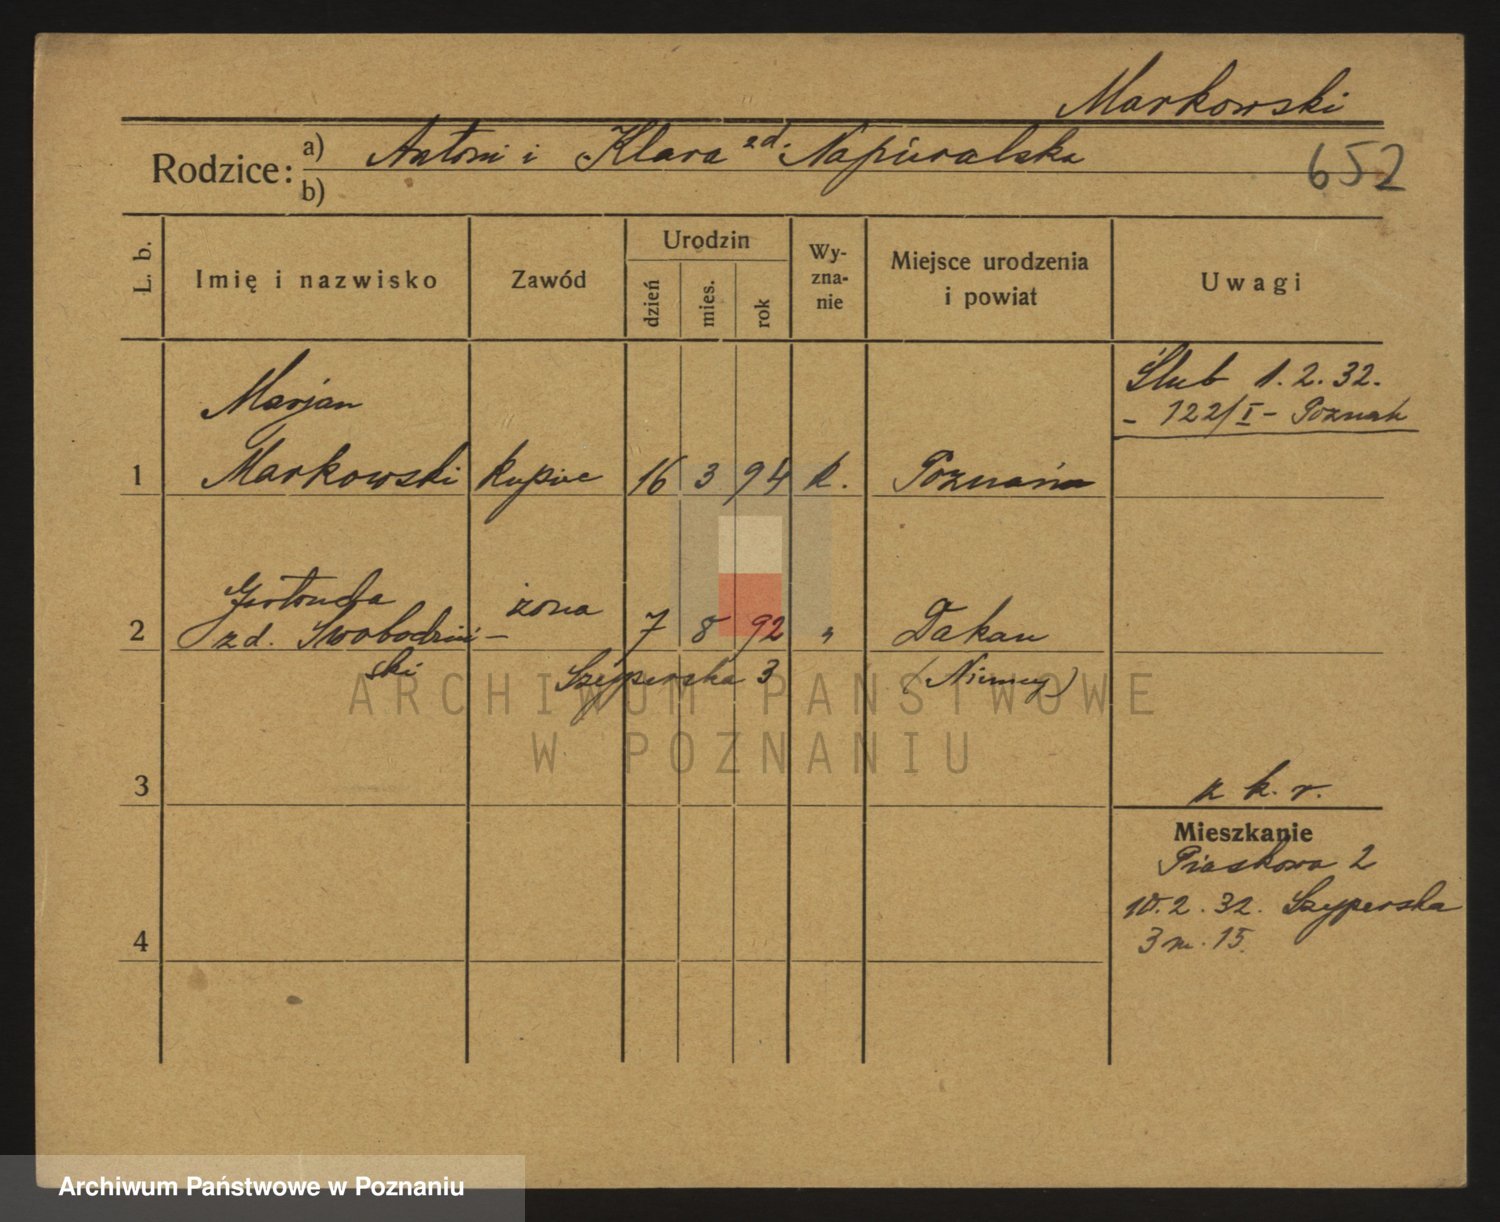 Markowski
Rodzice: a) Antoni i Klara zd. Napieralska
652
b)
L. b.
Imię i nazwisko
Zawód
Urodzin
dzień
mies.
rok
Wy-
zna-
nie
Miejsce urodzenia
i powiat
Uwagi
Ślub 1.2.32.
- 122/I - Poznań
Marjan
1 Markowski kupiec 16 3 94 k. Poznań
żona
2 zd. Swobodziń- 7 8 92 „ Dakau
ski Szyperska 3 (Niemcy)
ARCHIWUM PAŃSTWOWE
W POZNANIU
3
z k. r.
Mieszkanie
Piaskowa 2
10.2.32. Szyperska
3 m. 15.
4
Archiwum Państwowe w Poznaniu